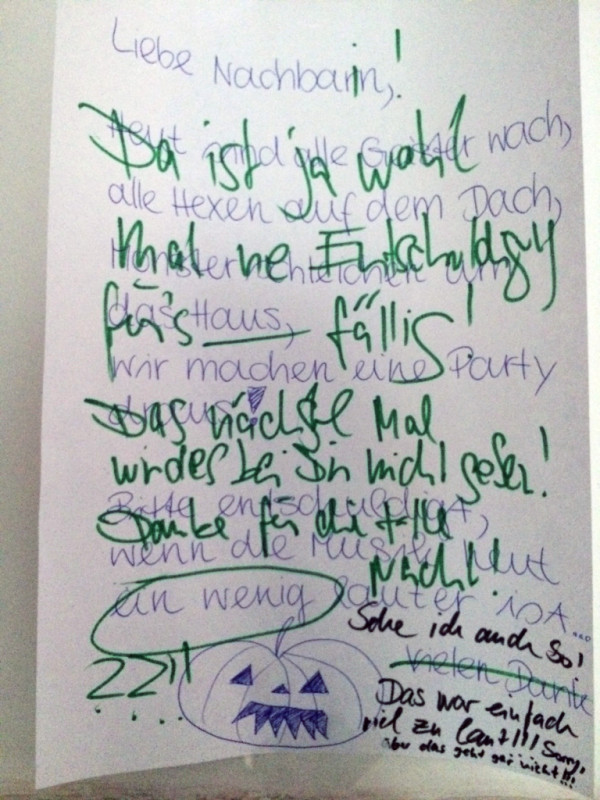 Liebe Nachbarn,!
Heut sind alle Geister wach,
alle Hexen auf dem Dach,
Monster schleichen um
das Haus,
wir machen eine Party
draus!
Bitte entschuldigt,
wenn die Musik heut
ein wenig lauter ist...
Vielen Dank
Da ist ja wohl
mal ne
für's fällig!
Das nächste Mal
bei Dir nicht
Danke für die
Nacht!
Sehe ich auch so!
Das war einfach
viel zu laut!!! Sorry,
aber das geht gar nicht!!!